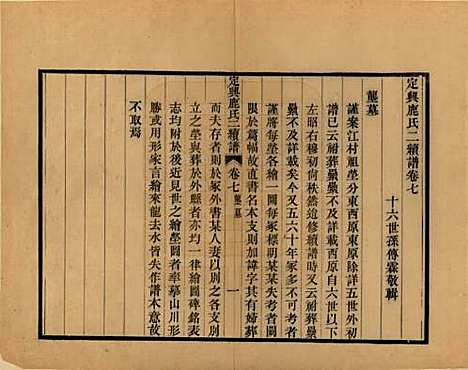 定興鹿氏二續譜卷七
十六世孫傳霖敬輯
塋墓
謹案江村祖塋分東西原東原除詳五世外初
譜已云祔葬纍纍不及詳載西原自六世以下
左昭右穆初尚秩然迨修續譜時又云祔葬纍
纍不及詳載矣今又五六十年冢多不可考者
謹將每塋各繪一圖每冢標明某某失考者闕
限於篇幅故直書名本支則加諱字其有婦葬
而夫存者則於冢外書某人妻以別之支派各
定興鹿氏二續譜 卷七 塋墓 一
立之塋與葬於外縣者亦均一律繪圖碑銘表
志均附於後近見世之繪塋圖者率摹山川形
勝或用形家言繪來龍去水皆失作譜本意故
不取焉